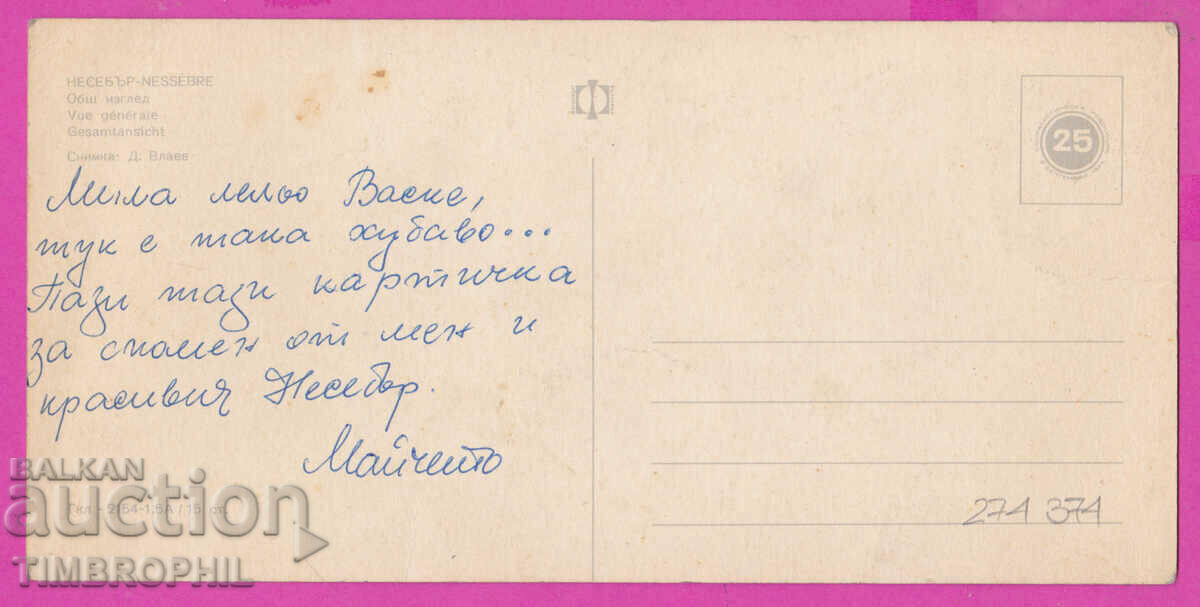 НЕСЕБЪР-NESSÈBRE
Общ изглед
Vue générale
Gesamtansicht
Снимка: Д. Влаев
25
Мила лельо Васке,
тук е така хубаво...
Пази тази картичка
за спомен от мен и
красивия Несебър.
Майчето
274 374
BALKAN
auction
TIMBROPHIL